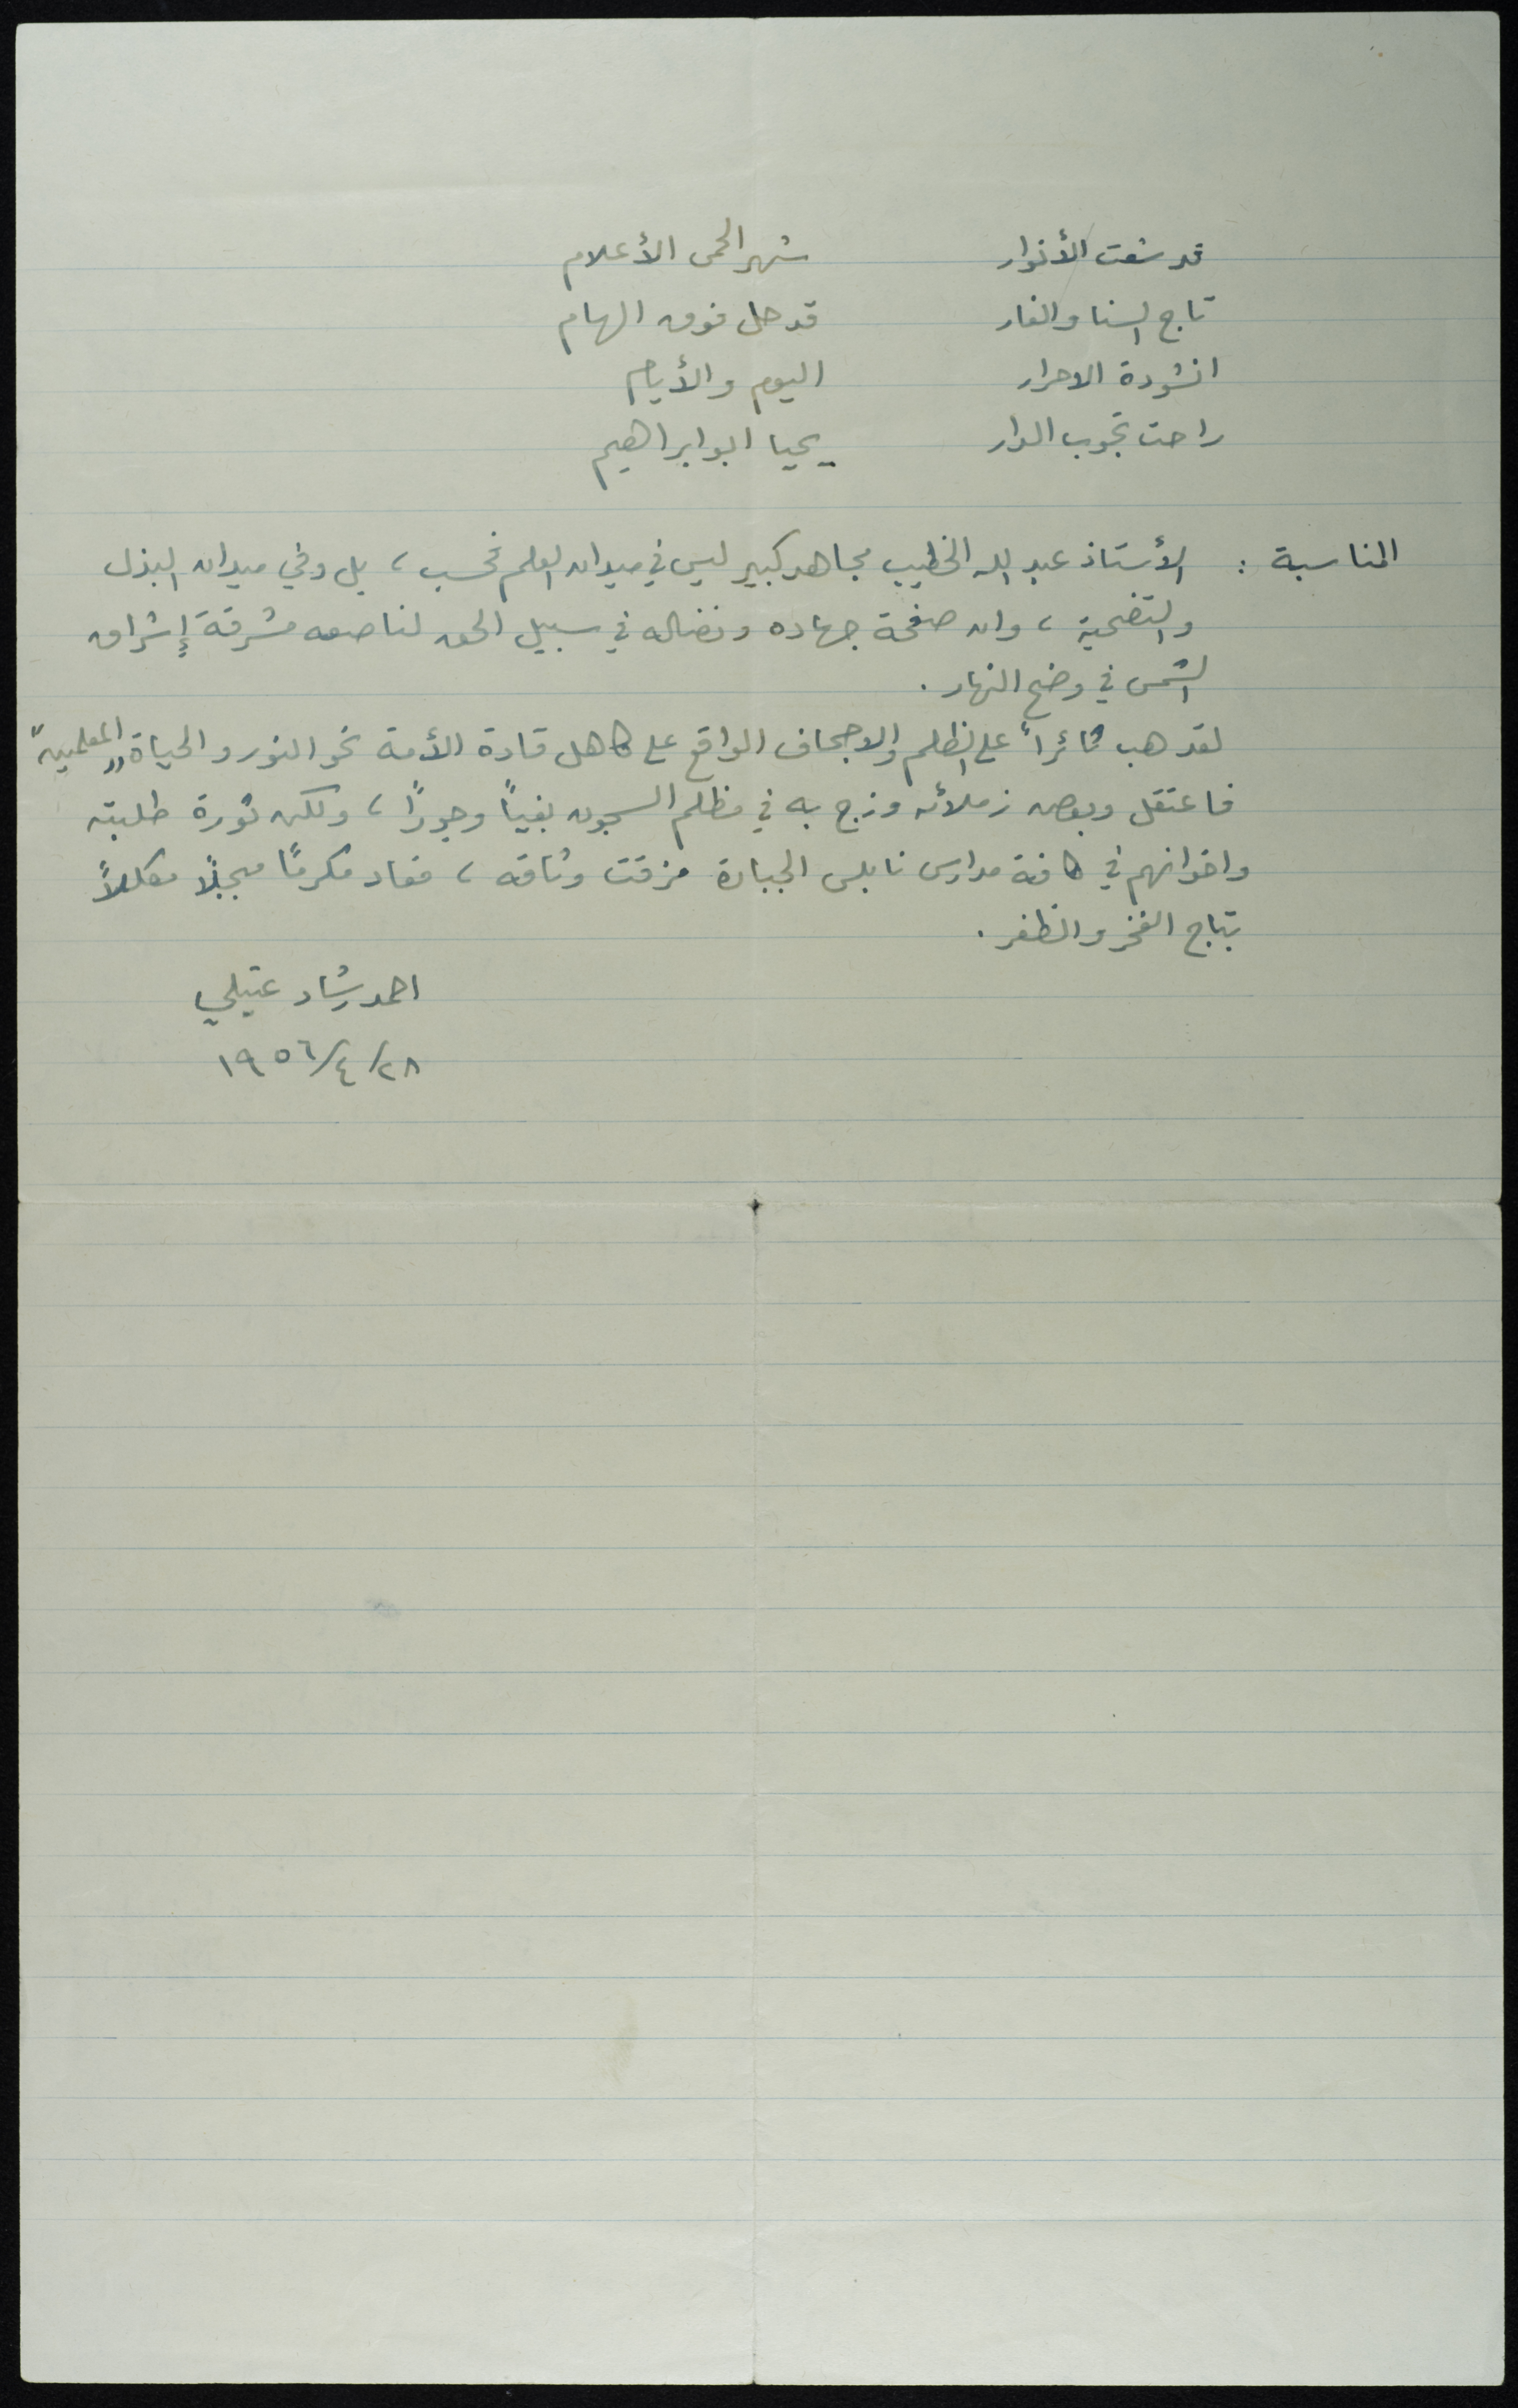 قد شعت الأنوار شهر الحمى الأعلام
تاج السنا والغار قد حل فوق الهام
انشودة الاحرار اليوم والأيام
راحت تجوب الدار يحيا ابو ابراهيم
المناسبة : الأستاذ عبد الله الخطيب مجاهد كبير ليس في ميدان العلم فحسب ، بل وفي ميدان البذل
والتضحية ، وان صفحة جهاده ونضاله في سبيل الحق لناصعه مشرقة إشراق
الشمس في وضح النهار .
لقد هب ثائراً على الظلم والاجحاف الواقع على كاهل قادة الأمة نحو النور والحياة "المعلمين"
فاعتقل وبعض زملائه وزج به في مظلم السجون بغياً وجوراً ، ولكن ثورة طلبته
واخوانهم في كافة مدارس نابلس الجبارة مزقت وثاقه ، فعاد مكرماً مبجلاً مكللاً
بتاج الفخر والظفر .
احمد رشاد عقيلي
٢٨/٤/١٩٥٦